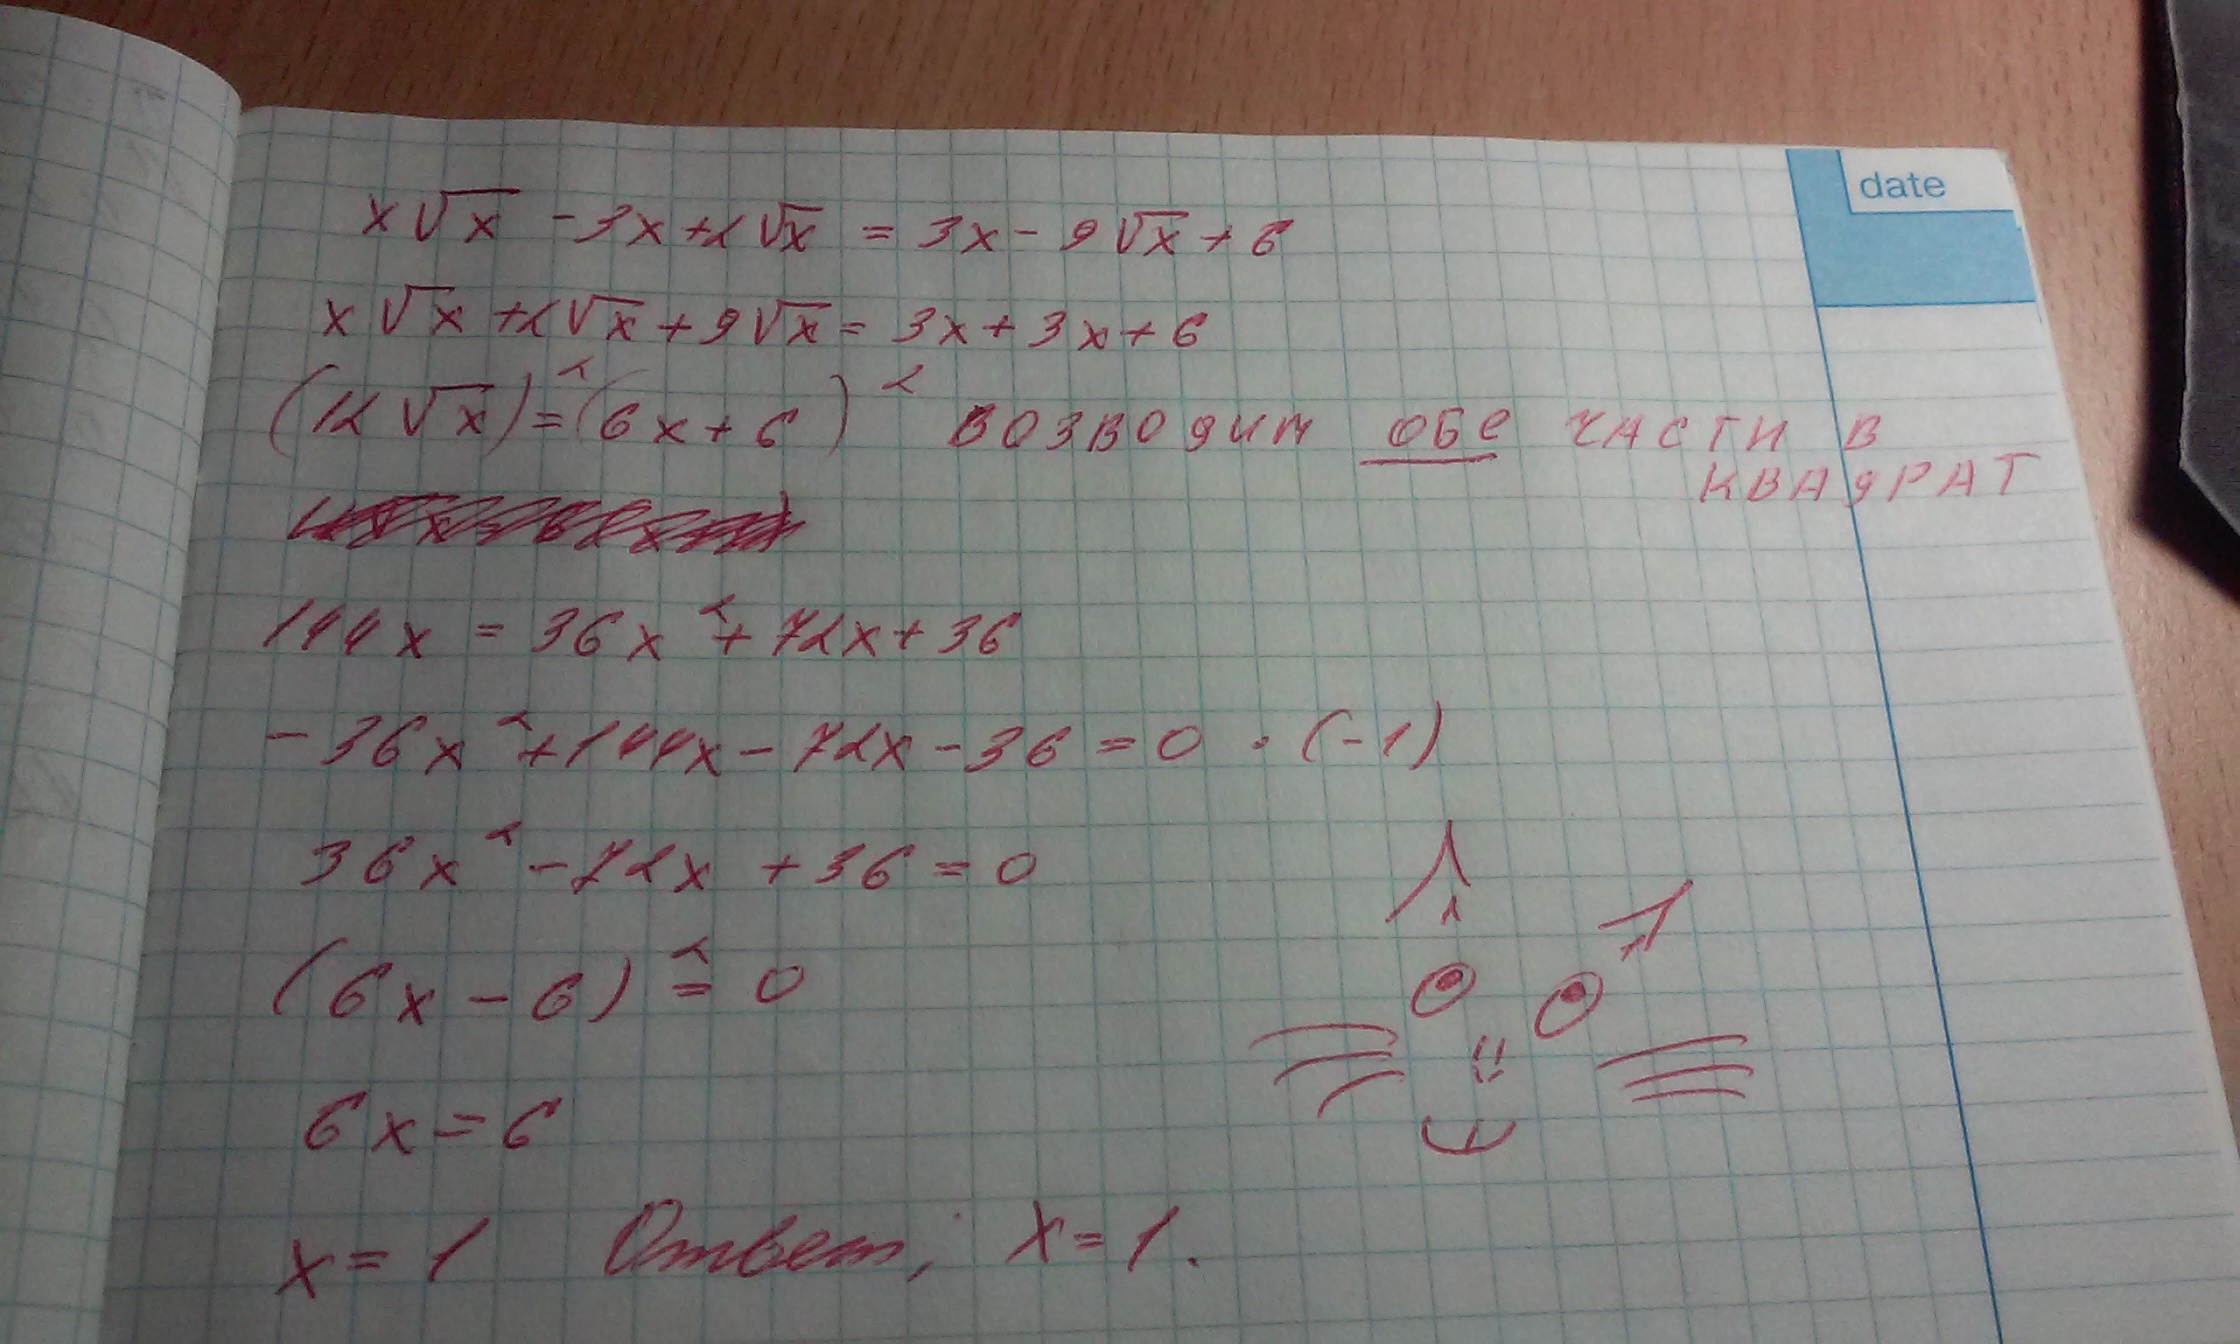 date
x√x - 3x + 2√x = 3x - 9√x + 6
x√x + 2√x + 9√x = 3x + 3x + 6
(12√x)² = (6x + 6)² ВОЗВОДИМ ОБЕ ЧАСТИ В
КВАДРАТ
144x = 36x² + 72x + 36
-36x² + 144x - 72x - 36 = 0 · (-1)
36x² - 72x + 36 = 0
(6x - 6)² = 0
6x = 6
x = 1 Ответ; x = 1.